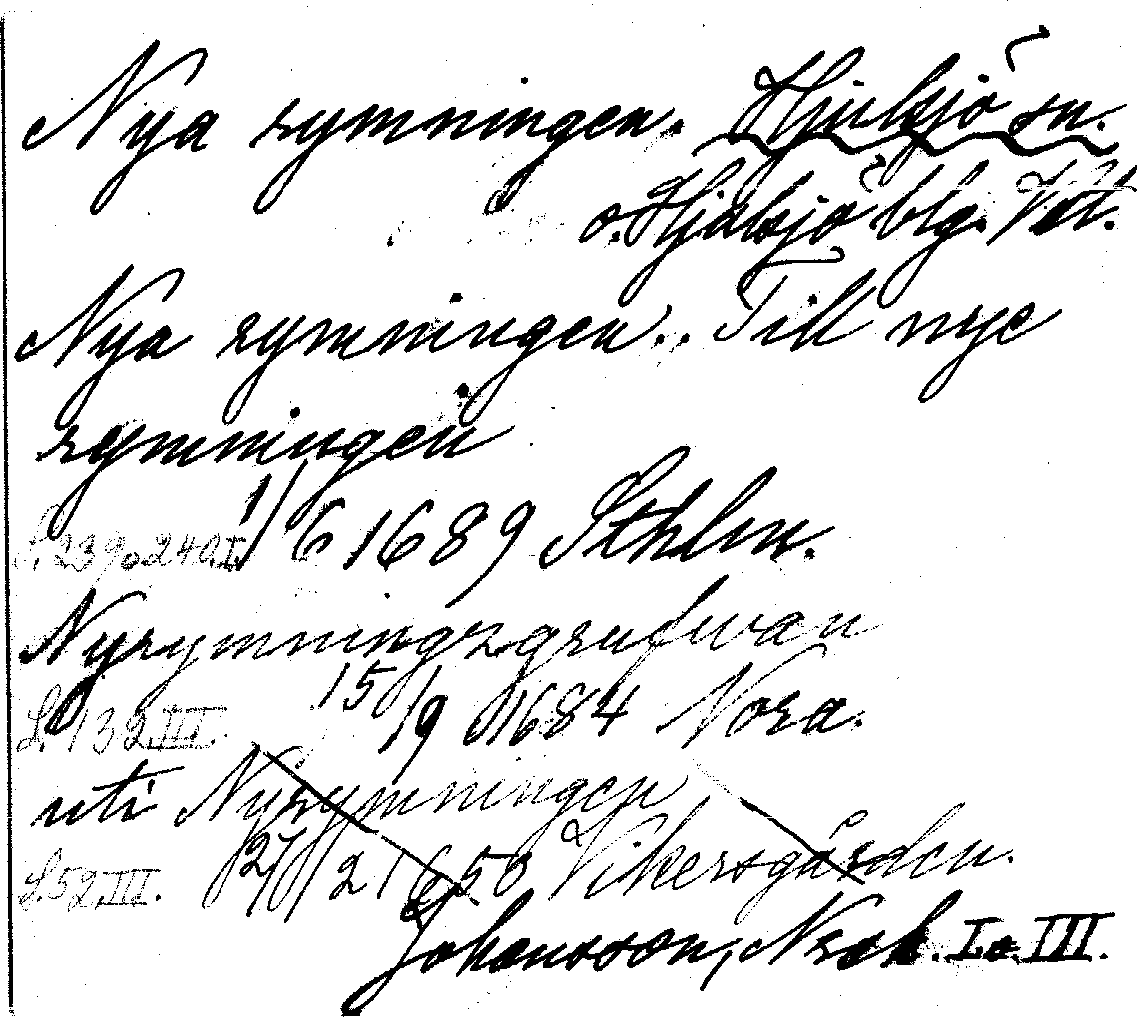 Nya rymningen. Hjulsjö sn.
o. Hjulsjö blg. Vstl.
Nya rymningen. Till nye
rymningen
S. 239 o 240 I. 1/6 1689 Sthlm.
Nyrymningzgrufwan
S. 132 III. 15/9 1684 Nora.
uti Nyrymningen
S. 52 III. 27/2 1650 Vikersgården.
Johansson, Nrsk. I o III.